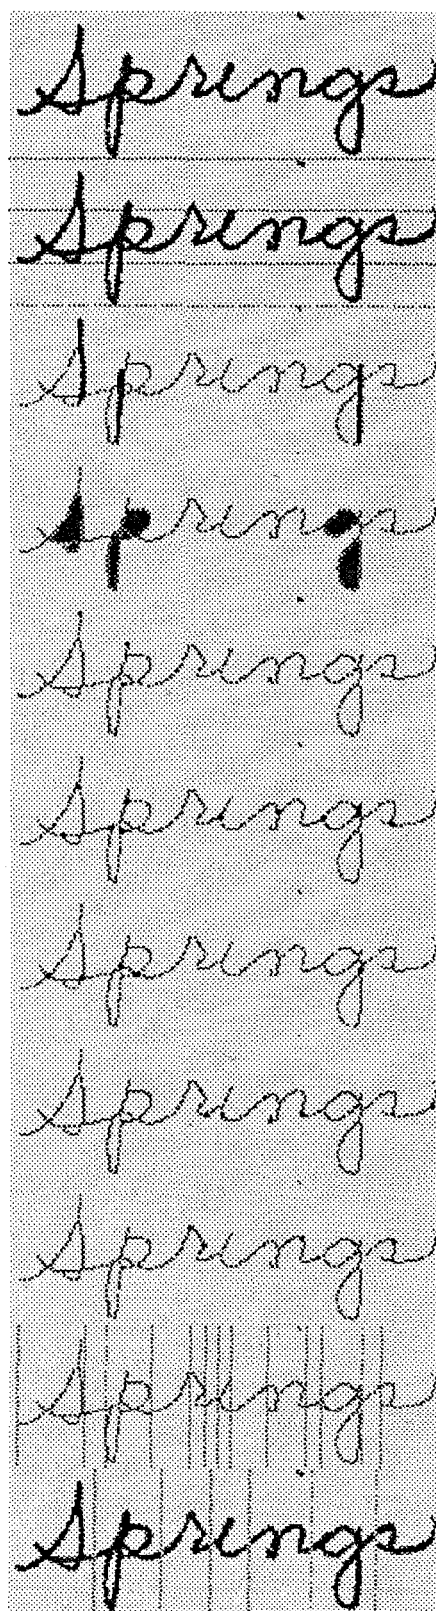 Springs
Springs
Springs
Springs
Springs
Springs
Springs
Springs
Springs
Springs
Springs